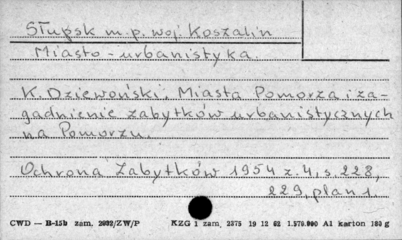 Słupsk m.p. woj. Koszalin
Miasto - urbanistyka.
K. Dziewoński, Miasta Pomorza i za-
gadnienie zabytków urbanistycznych
na Pomorzu.
Ochrona Zabytków 1954 z. 4, s. 228,
229, plan 1.
CWD — B-15b zam. 2992/ZW/P KZG 1 zam, 2375 19 12 62 1.570.000 A1 karton 180 g